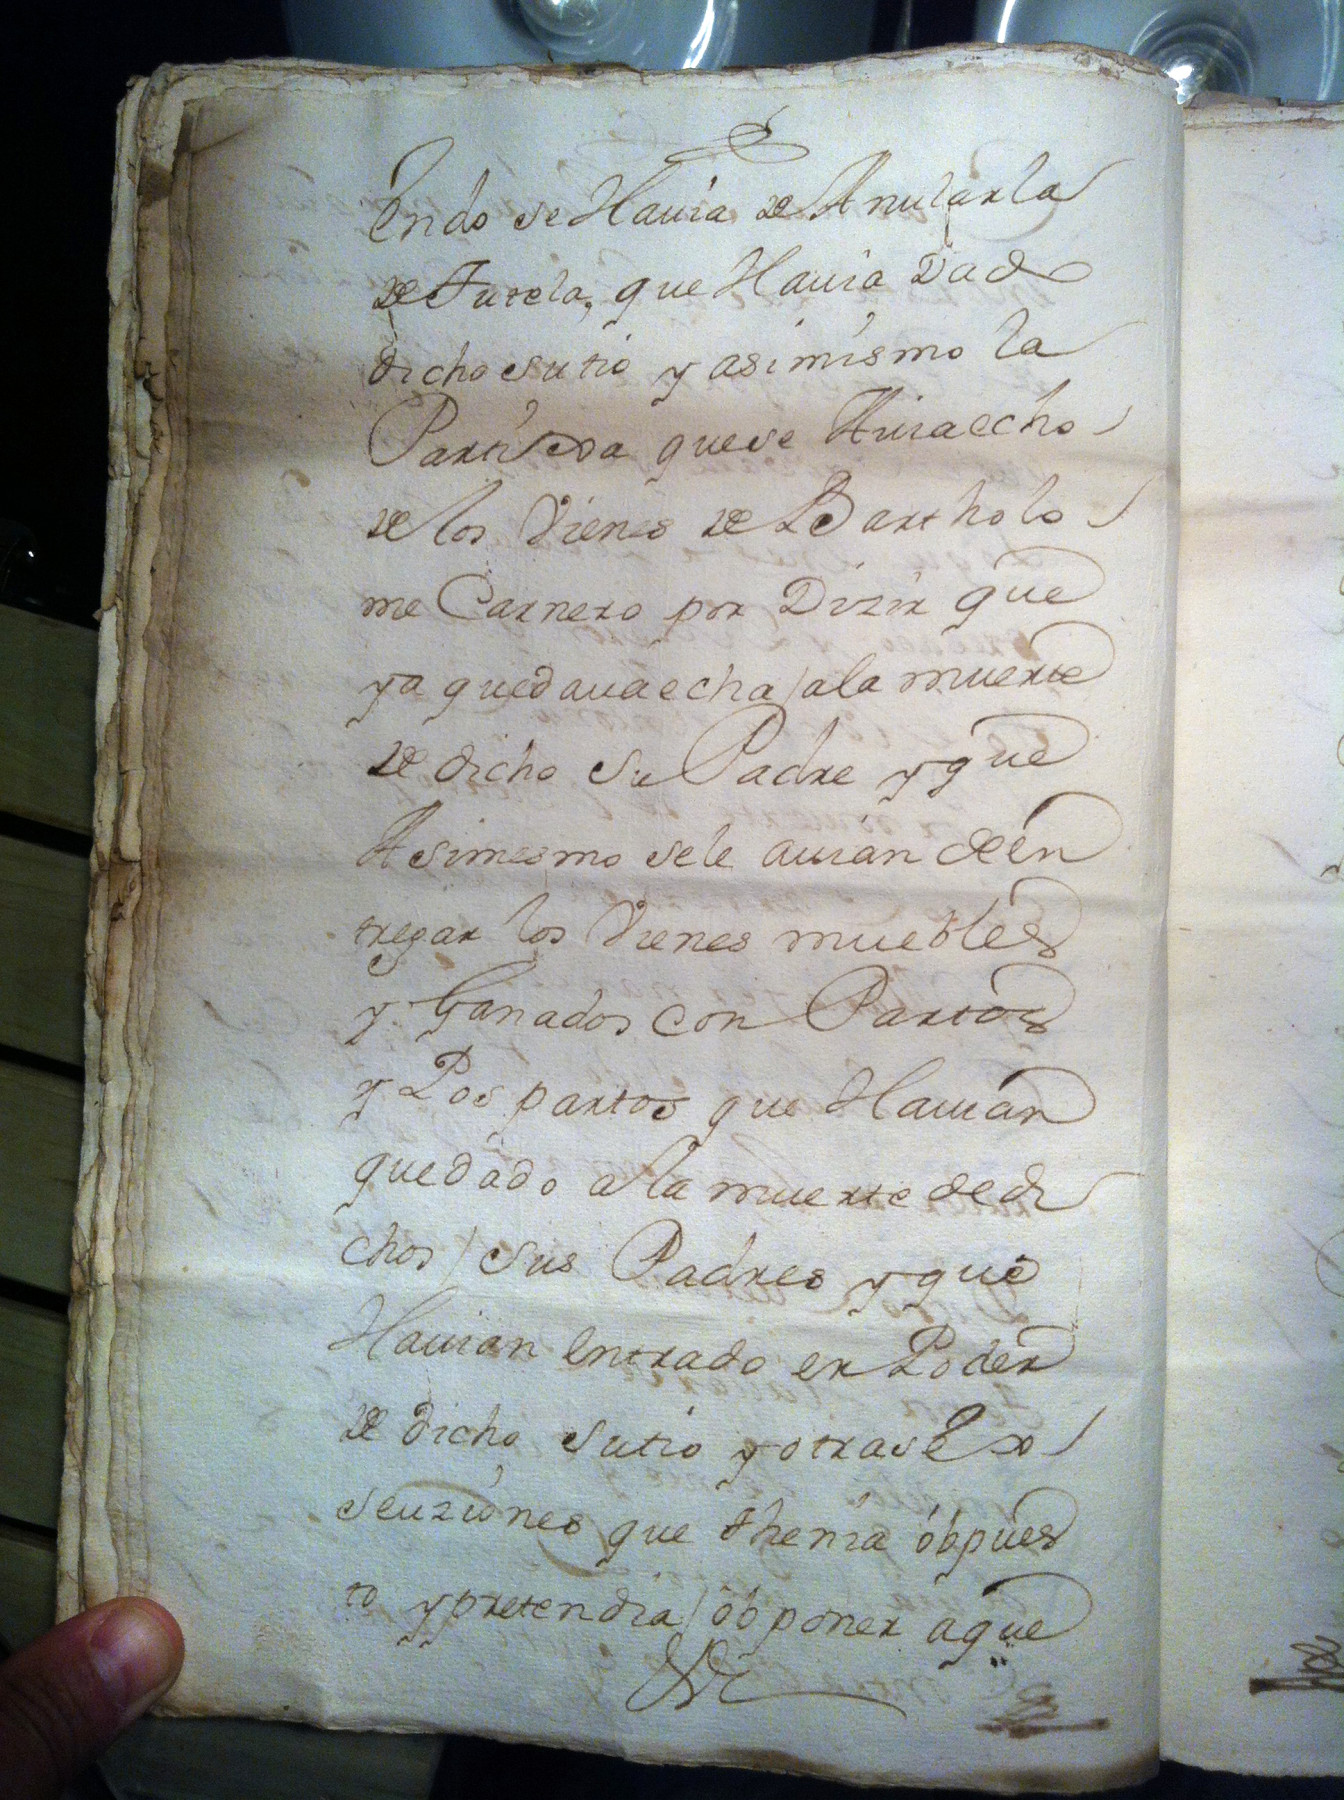 endo se Havia de Anular la
de Tutela, que Havia Dado
dicho su tio y asimismo la
Partisíon que se Avia echo
de los Vienes de Bartholo
me Carnero por Dizir que
ya quedava echa a la muerte
de dicho su Padre y que
Asimesmo se le avian de en
tregar los Vienes muebles
y Ganados con Partos
y Pos partos que Havian
quedado a la muerte de di
chos sus Padres y que
Havian entrado en Poder
de dicho su tio y otras Ex
seuziones que thenia obpues
to y pretendia obponer a que